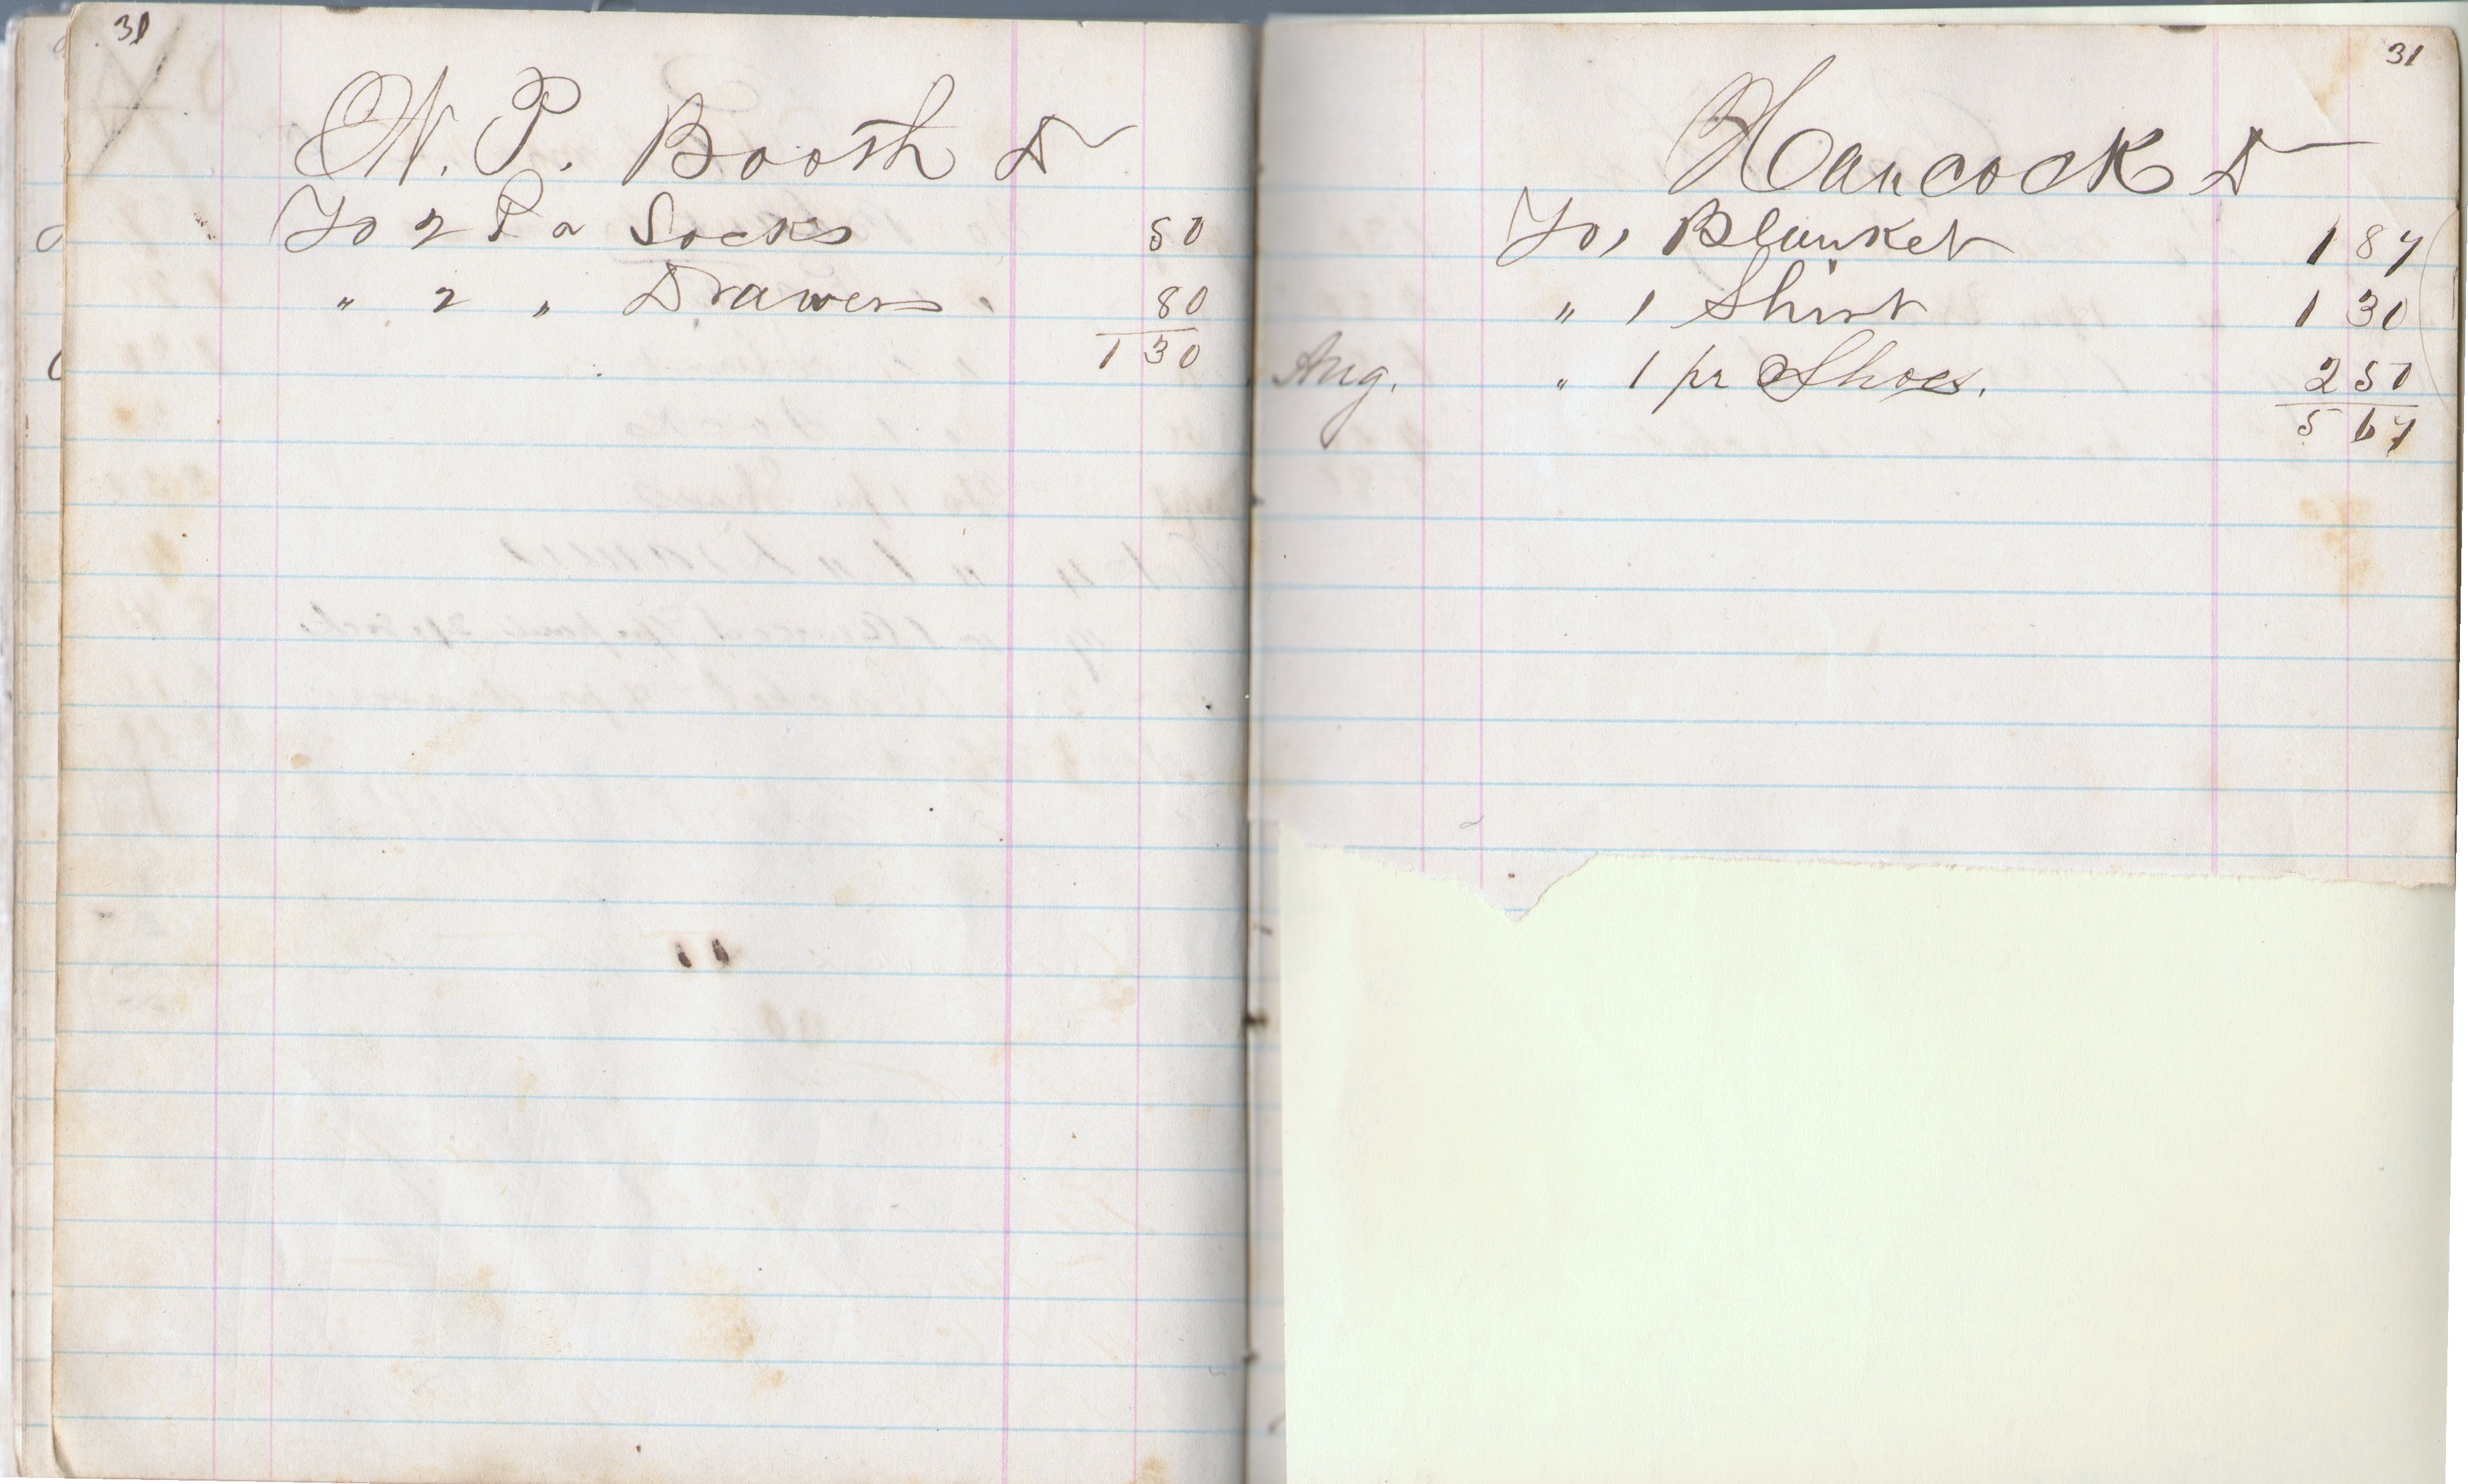 31
W. P. Booth Dr
To 2 Pr Socks 50
" 2 " Drawers 80
1 30
31
Hancock Dr
To 1 Blanket 1 87
" 1 Shirt 1 30
Aug. " 1 pr Shoes. 2 50
5 67